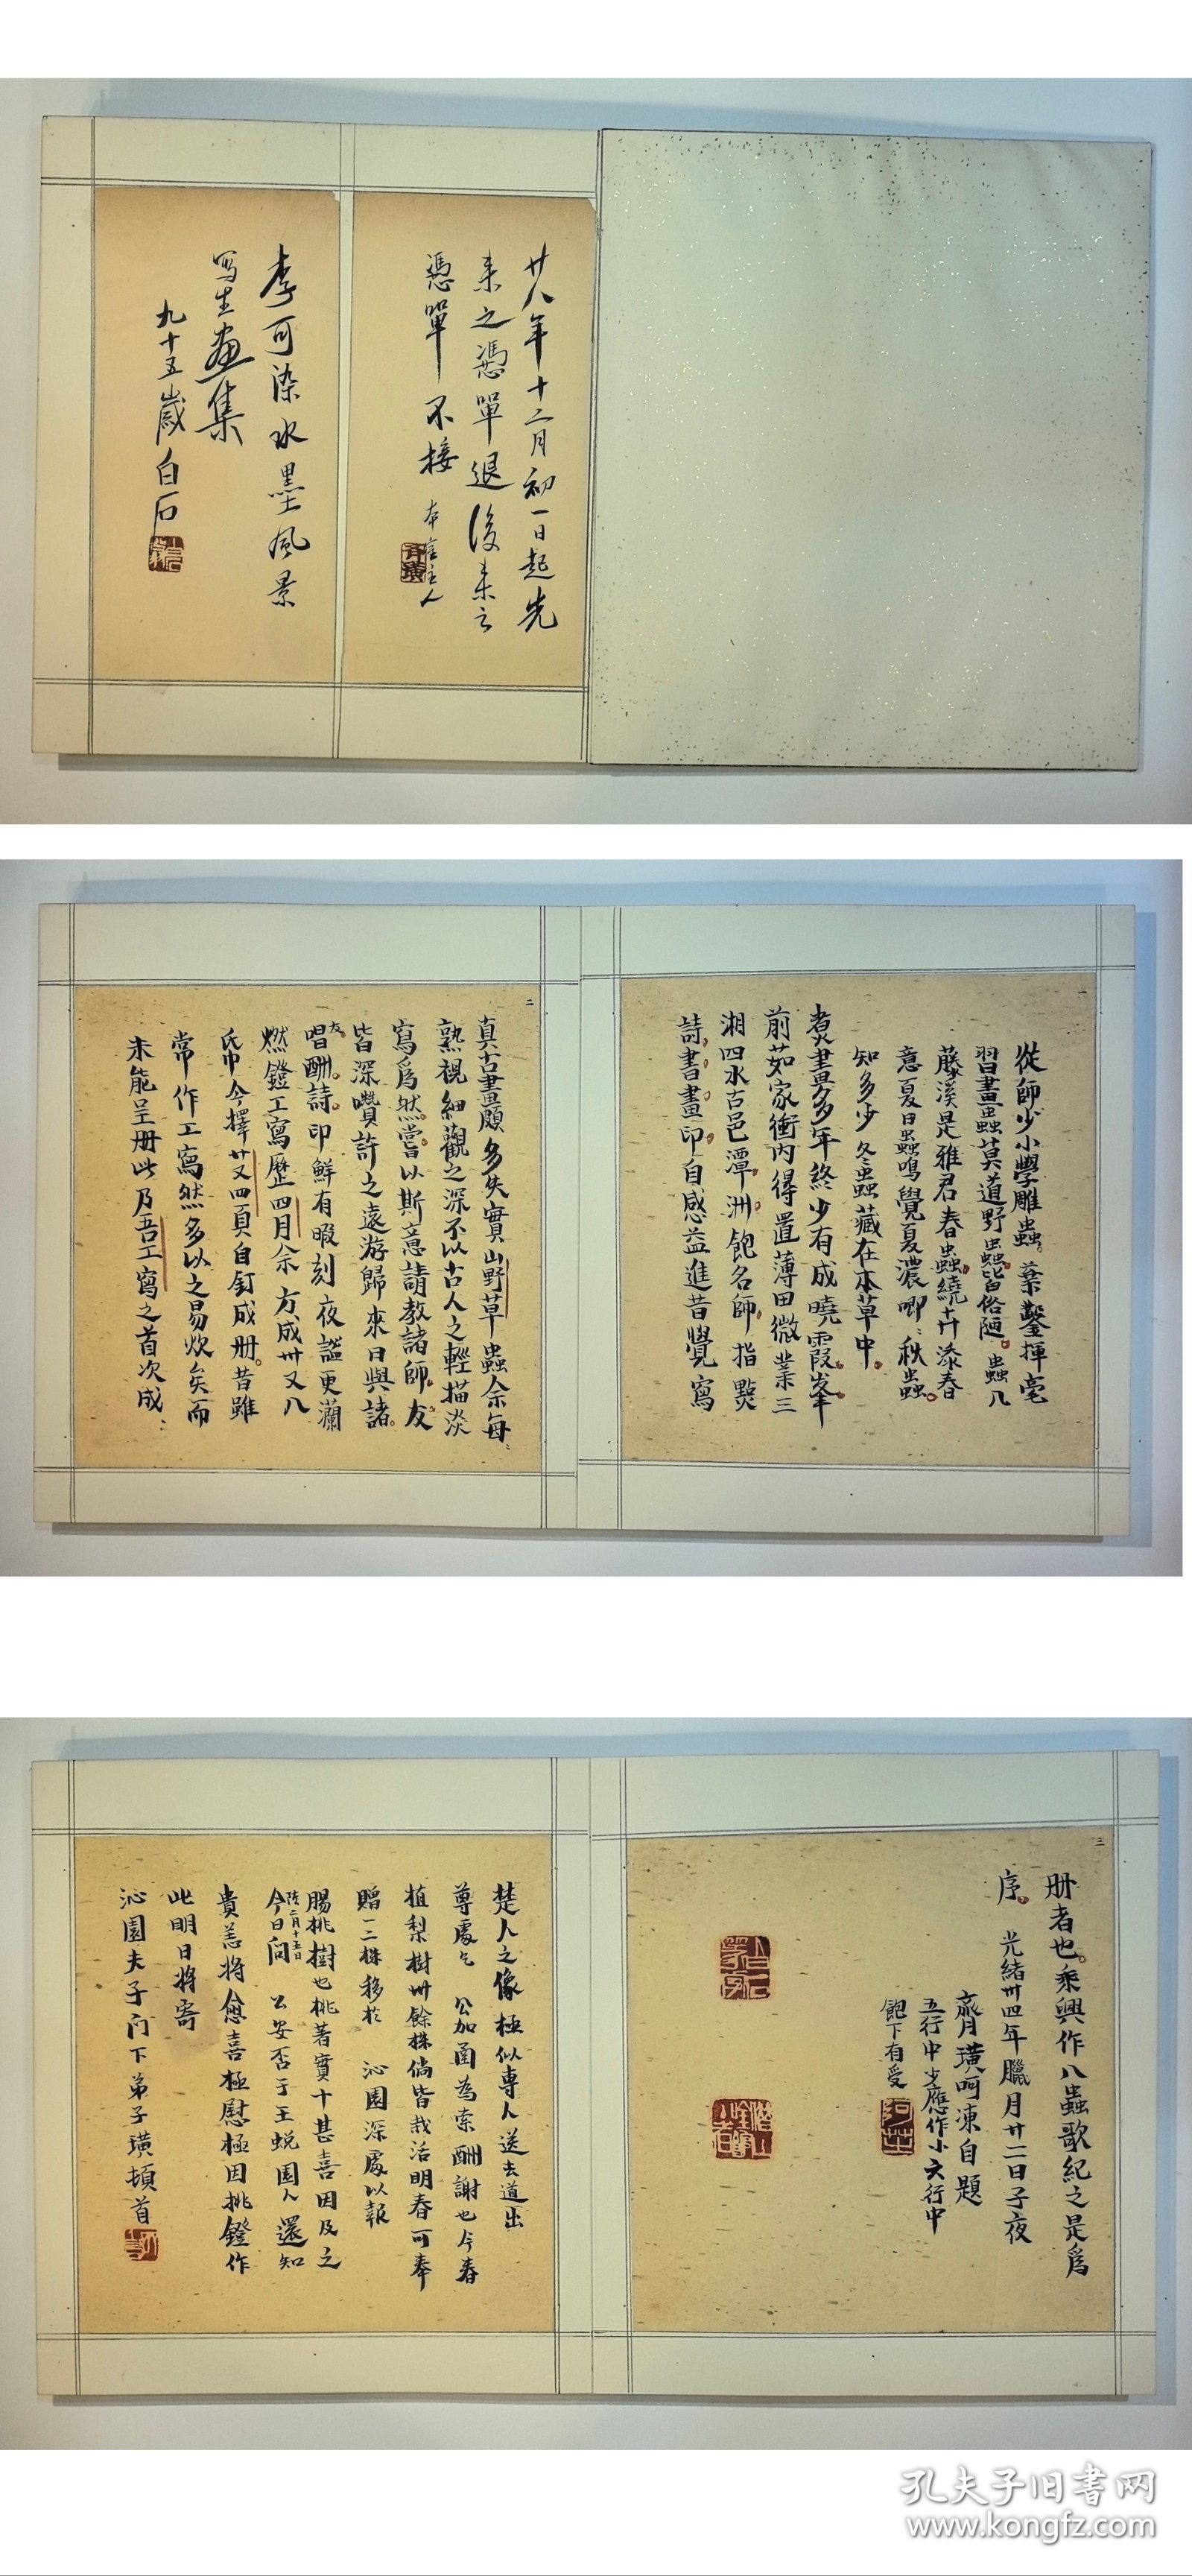 廿八年十二月初一日起先
来之憑單退後来之
憑單不接
李可染水墨風景
写生画集
九十五歲白石
一
從師少小學雕蟲。棄鑿揮毫
習畫蟲莫道野蟲皆俗陋。蟲几
藤溪是雅君春蟲繞卉添春
意夏日蟲鳴覺夏濃唧〻秋蟲。
知多少冬蟲藏在本草中。
煮畫多年終少有成曉霞峯
前茹家衝內得置薄田微業三
湘四水古邑潭洲飽名師指點
詩書畫印自感益進昔覺寫
二
真古畫頗多失實山野草蟲余每〻
熟視細觀之深不以古人之輕描淡
寫爲然。嘗以斯意請教諸師友
皆深贊許之遠游歸來日與諸
友
唱酬詩印鮮有暇刻夜謐更瀾
燃鐙工寫歷四月余方成卅又八
氏巾今擇廿又四頁自釘成册。昔雖
常作工寫然多以之易炊矣而
未能呈册此乃吾工寫之首次成〻
三
册者也。乘興作八蟲歌紀之是爲
序。光緒卅四年臘月廿二日子夜
齊璜呵凍自題
五行中少應作小六行中
飽下有受
楚人之像極似專人送去道出
尊處乞 公加函為索酬謝也今春
植梨樹卅餘株倘皆栽活明春可奉
贈一二株移於 沁園深處以報
賜桃樹也桃著實十甚喜因及之
陰二月十五日
今日問 公安否于王蜕園人還知
貴恙將愈喜極慰極因挑鐙作
此明日將寄
沁園夫子門下弟子璜頓首
孔夫子旧书网
www.kongfz.com